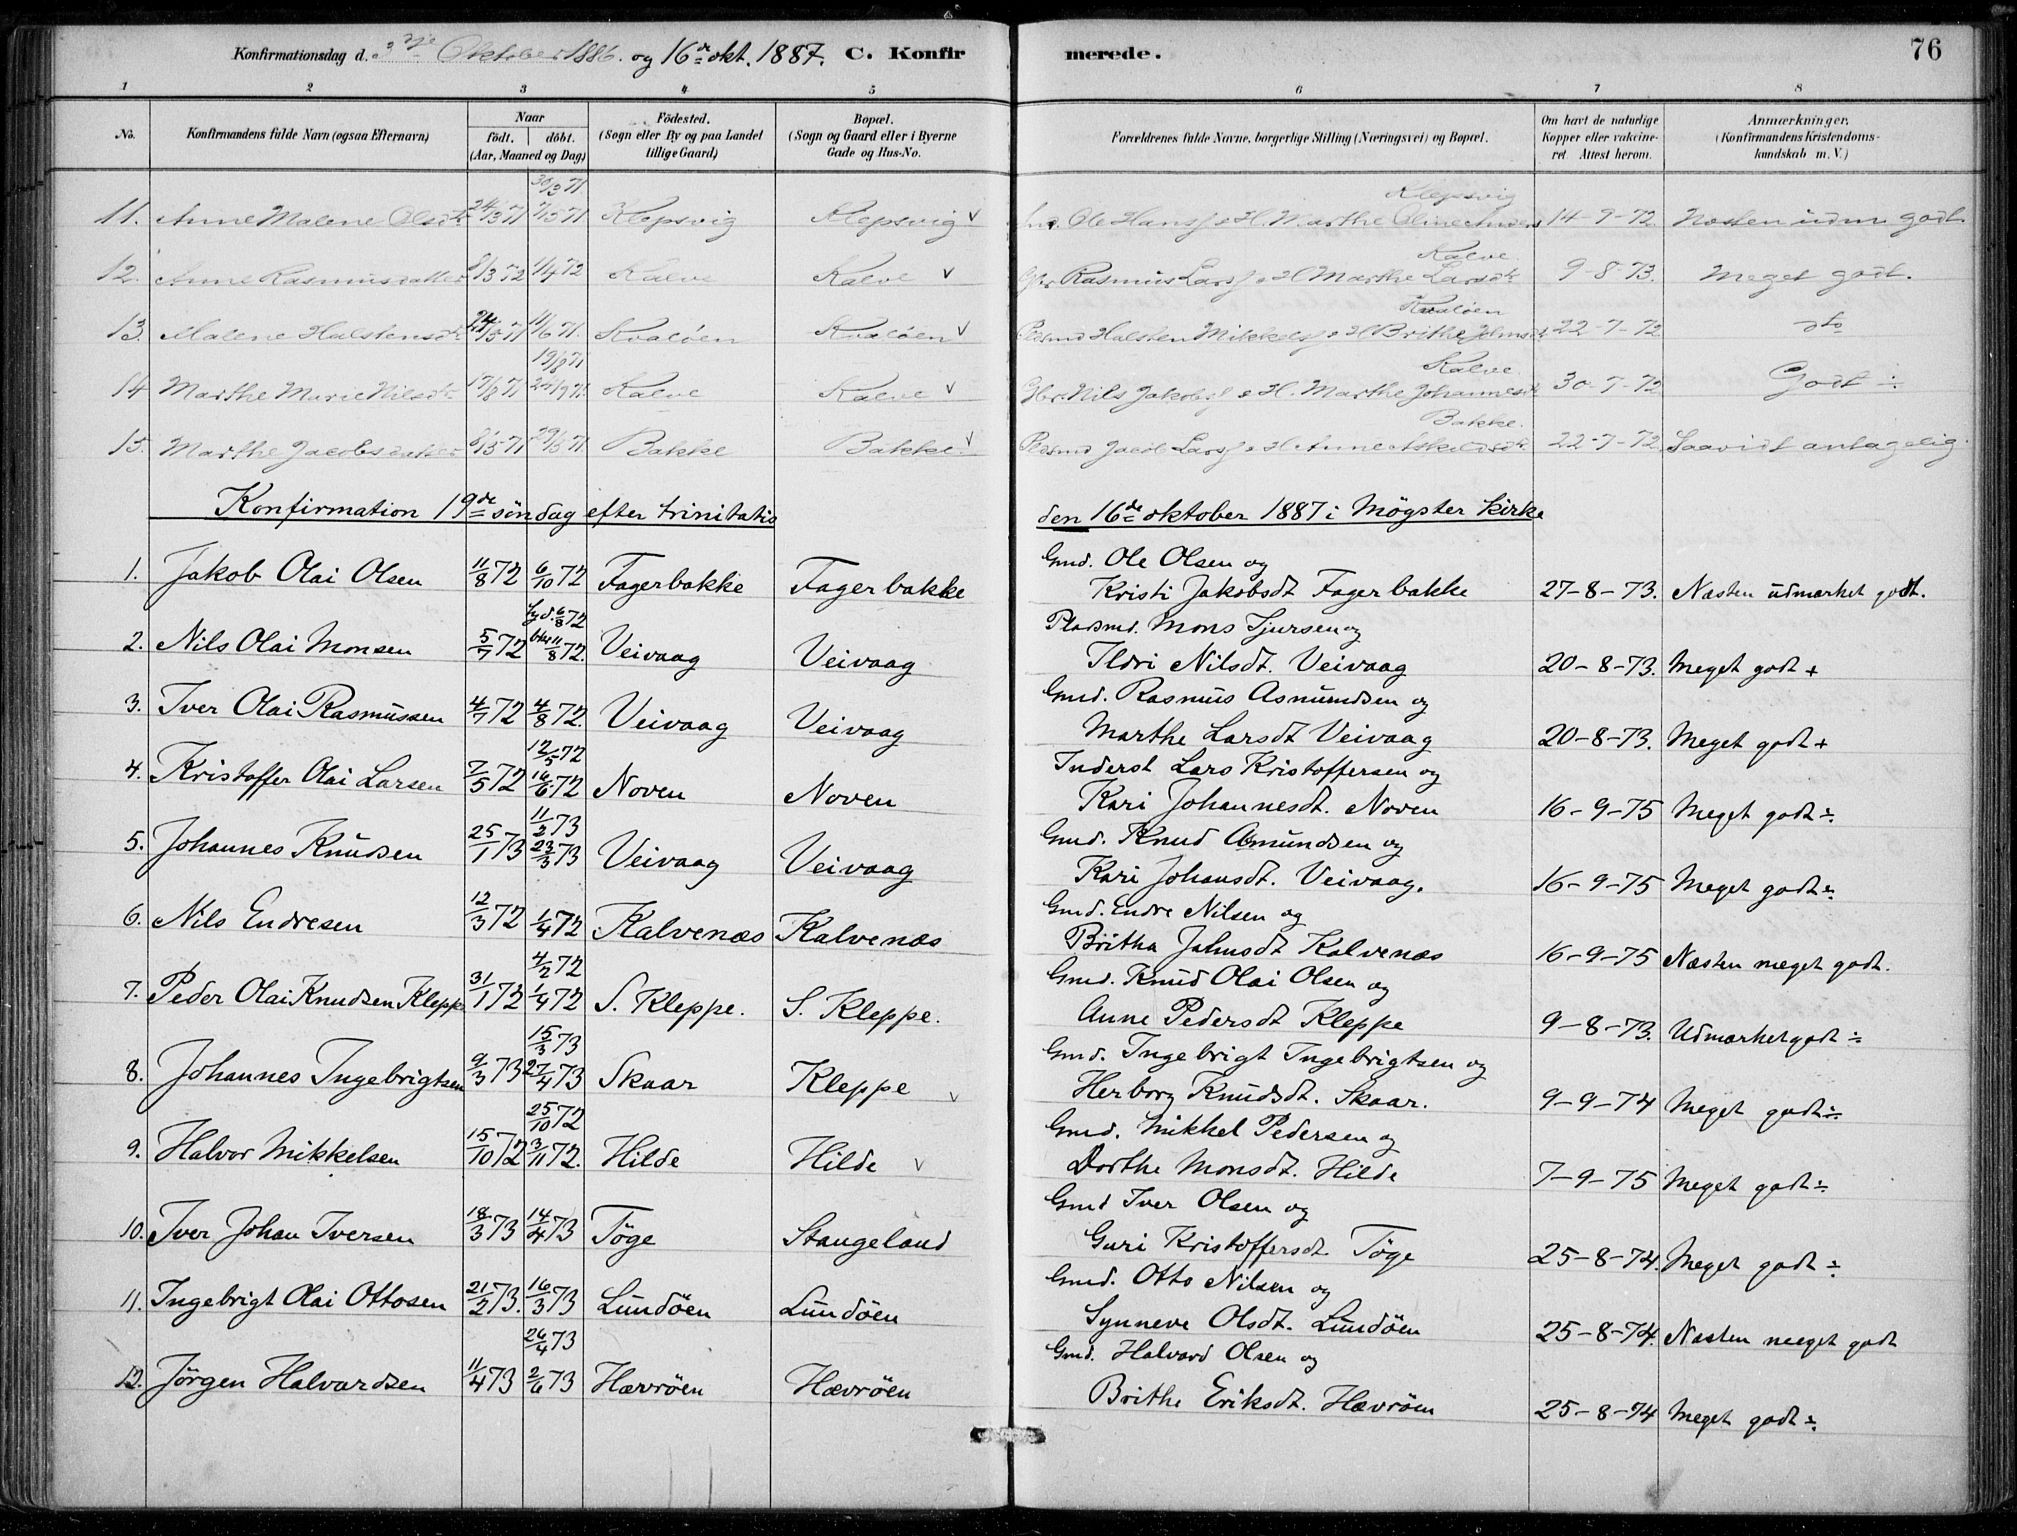 Konfirmationsdag d. 3die Oktober 1886. og 16de okt. 1887. C. Konfirmerede. 76
1 2 3 4 5 6 7 8
No. Konfirmandens fulde Navn (ogsaa Efternavn) Naar födt. döbt. (Aar, Maaned og Dag) Födested. (Sogn eller By og paa Landet tillige Gaard) Bopæl. (Sogn og Gaard eller i Byerne Gade og Hus-No. Forældrenes fulde Navne, borgerlige Stilling (Næringsvei) og Bopæl. Om havt de naturlige Kopper eller vaccineret. Attest herom. Anmærkninger. (Konfirmandens Kristendomskundskab m. V.)
30/3 71 Klepsvig
11. Anne Malene Olsdtr 24/3 71 7/5 71 Klepsvig Klepsvig v Ole Hanss. o H. Marthe Oline 14-9-72 Næsten udm. godt.
Kalve
12. Anne Rasmusdatter 8/3 72 1/4 72 Kalve Kalve v Gbr. Rasmus Larss o H Marthe Larsdtr 9-8-73. Meget godt.
Kvaløen
13. Malene Halstensdtr 24/5 71 11/6 71. Kvaløen Kvaløen v Pldsmd Halsten Mikkelss o H Brithe Johnsdtr 22-7-72 dto
19/8 71 Kalve
14 Marthe Marie Nilsdtr 17/8 71 24/9 71. Kalve Kalve v Gbr. Nils Jakobss o H. Marthe Johannesdtr 30-7-72 Godt ÷
Bakke.
15. Marthe Jacobsdatter 71 29/5 71 Bakke Bakke. v Pldsmd Jacob Larss o H Anne Askeldsdtr. 22-7-72 Saavidt antagelig.
Konfirmation 19de söndag efter trinitatis den 16de oktober 1887 i Mögster Kirke
Gmd. Ole Olsen og
1. Jakob Olai Olsen 11/8 72 6/10 72 Fagerbakke Fagerbakke Kristi Jakobsdt Fagerbakke 27-8-73. Næsten udmærket godt.
6/8 72 Pladsmd. Mons Tjursen og
2. Nils Olai Monsen 5/7 72 11/8 72. Veivaag Veivaag Ildri Nilsdt. Veivaag 20-8-73. Meget godt +
Gmd. Rasmus Asmundsen og
3. Iver Olai Rasmussen 4/7 72 4/8 72. Veivaag Veivaag Marthe Larsdt Veivaag 20-8-73. Meget godt +
12/5 72 Inderst Lars Kristoffersen og
4. Kristoffer Olai Larsen 7/5 72 16/6 72 Noven Noven Kari Johannesdt. Noven 16-9-75 Meget godt ÷
11/2 73 Gmd. Knud Asmundsen og
5. Johannes Knudsen 25/1 73 23/3 73 Veivaag Veivaag Kari Johansdt. Veivaag. 16-9-75 Meget godt ÷
Gmd. Endre Nilsen og
6. Nils Endresen 12/3 72 1/4 72 Kalvenæs Kalvenæs Britha Jahnsdt Kalvenæs 16-9-75 Næsten meget godt.
4/2 72 Gmd. Knud Olai Olsen og
7. Peder Olai Knudsen Kleppe 31/1 72 1/4 72 S. Kleppe. S. Kleppe. Anne Pedersdt Kleppe 9-8-73. Udmærket godt ÷
15/3 73 Gmd. Ingebrigt Ingebrigtsen og
8. Johannes Ingebrigtsen 9/3 73 27/4 73 Skaar Kleppe v Herborg Knudsdt. Skaar. 9-9-74 Meget godt ÷
25/10 72 Gmd. Mikkel Pedersen og
9. Halvor Mikkelsen 15/10 72 3/11 72. Hilde Hilde v Dorthe Monsdt. Hilde 7-9-75 Meget godt ÷
Gmd Iver Olsen og
10. Iver Johan Iversen 18/3 73 14/4 73 Töge Stangeland Guri Kristoffersdt. Töge 25-8-74. Meget godt ÷
Gmd. Otto Nilsen og
11. Ingebrigt Olai Ottosen 21/2 73. 16/3 73 Lundöen Lundöen Synneve Olsdt. Lundöen 25-8-74. Næsten meget godt
26/4 73 Gmd. Halvard Olsen og
12. Jörgen Halvardsen 11/4 73 2/6 73 Hævröen Hævröen Brithe Eriksdt. Hævröen 25-8-74 Meget godt ÷